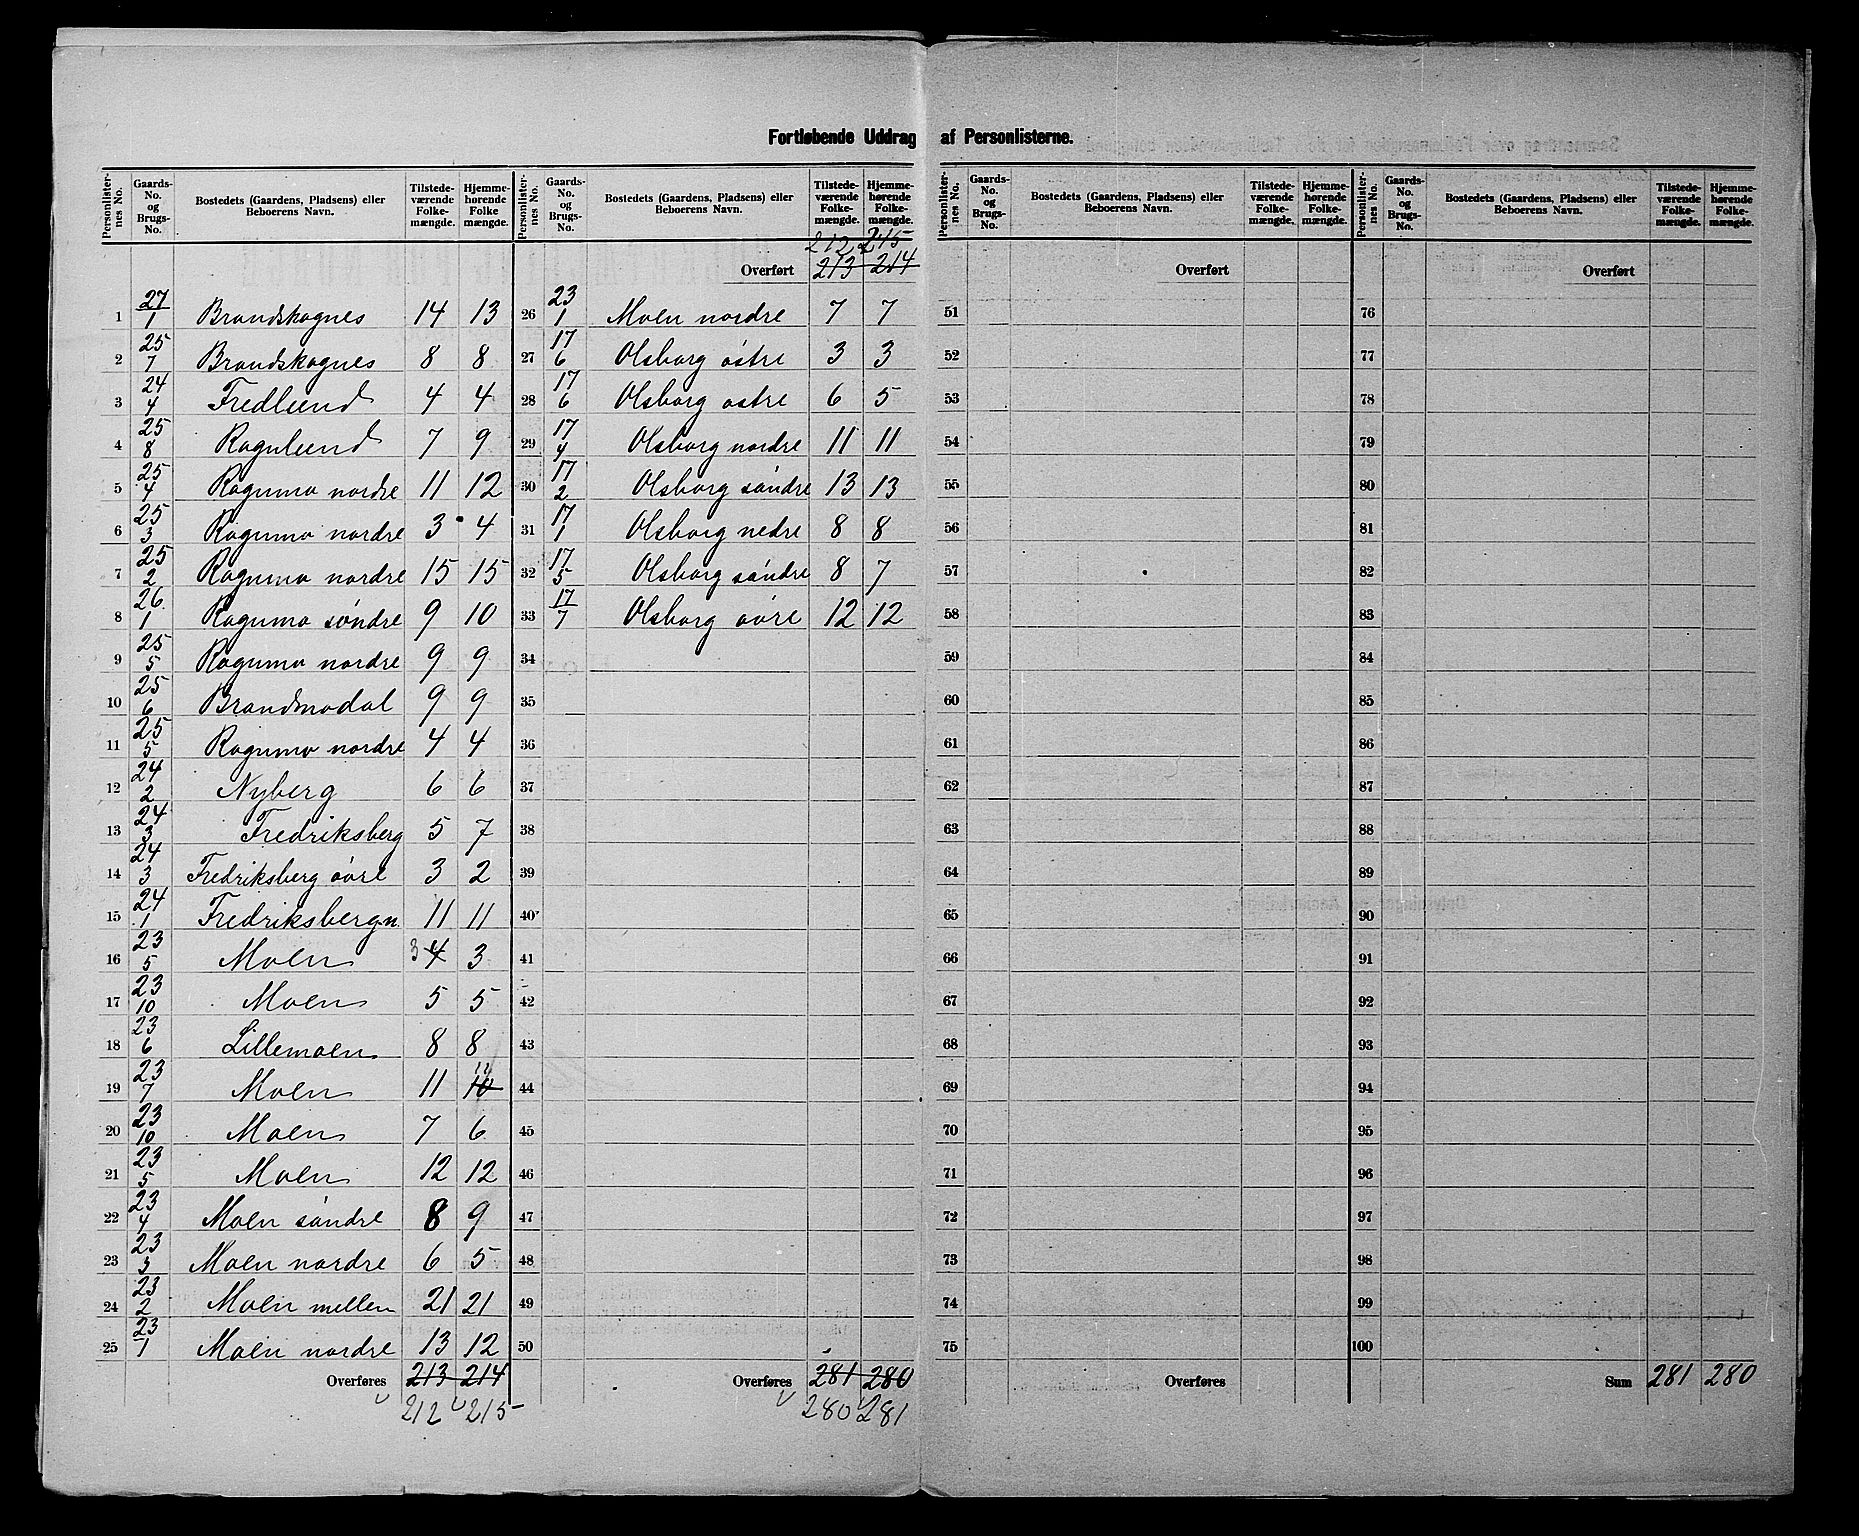 Fortløbende Uddrag af Personlisterne.
Personlister-nes No. | Gaards-No. og Brugs-No. | Bostedets (Gaardens, Pladsens) eller Beboerens Navn. | Tilstede-værende Folke-mængde. | Hjemme-hørende Folke mængde.
1 | 27/1 | Brandskognes | 14 | 13
2 | 25/7 | Brandskognes | 8 | 8
3 | 24/4 | Fredlund | 4 | 4
4 | 25/8 | Rognlund | 7 | 9
5 | 25/4 | Rognmo nordre | 11 | 12
6 | 25/3 | Rognmo nordre | 3 | 4
7 | 25/2 | Rognmo nordre | 15 | 15
8 | 26/1 | Rognmo søndre | 9 | 10
9 | 25/5 | Rognmo nordre | 9 | 9
10 | 25/6 | Brandmodal | 9 | 9
11 | 25/5 | Rognmo nordre | 4 | 4
12 | 24/2 | Nyberg | 6 | 6
13 | 24/3 | Fredriksberg | 5 | 7
14 | 24/3 | Fredriksberg övre | 3 | 2
15 | 24/1 | Fredriksberg n. | 11 | 11
16 | 23/5 | Moen | 3 4 | 3
17 | 23/10 | Moen | 5 | 5
18 | 23/6 | Lillemoen | 8 | 8
19 | 23/7 | Moen | 11 | 11 10
20 | 23/10 | Moen | 7 | 6
21 | 23/5 | Moen | 12 | 12
22 | 23/4 | Moen söndre | 8 | 9
23 | 23/3 | Moen nordre | 6 | 5
24 | 23/2 | Moen mellem | 21 | 21
25 | 23/1 | Moen nordre | 13 | 12
Overføres | 213 | 214
212 | 215
Personlister-nes No. | Gaards-No. og Brugs-No. | Bostedets (Gaardens, Pladsens) eller Beboerens Navn. | Tilstede-værende Folke-mængde. | Hjemme-hørende Folke-mængde.
212 | 215
Overført | 213 | 214
26 | 23/1 | Moen nordre | 7 | 7
27 | 17/6 | Olsborg östre | 3 | 3
28 | 17/6 | Olsborg ostre | 6 | 5
29 | 17/4 | Olsborg nordre | 11 | 11
30 | 17/2 | Olsborg söndre | 13 | 13
31 | 17/1 | Olsborg nedre | 8 | 8
32 | 17/5 | Olsborg söndre | 8 | 7
33 | 17/7 | Olsborg övre | 12 | 12
34
35
36
37
38
39
40
41
42
43
44
45
46
47
48
49
50
Overføres | 281 | 280
280 | 281
Personlister-nes No. | Gaards-No. og Brugs-No. | Bostedets (Gaardens, Pladsens) eller Beboerens Navn. | Tilstede-værende Folke-mængde. | Hjemme-hørende Folke-mængde.
Overført
51
52
53
54
55
56
57
58
59
60
61
62
63
64
65
66
67
68
69
70
71
72
73
74
75
Overføres
Personlister-nes No. | Gaards-No. og Brugs-No. | Bostedets (Gaardens, Pladsens) eller Beboerens Navn. | Tilstede-værende Folke-mængde. | Hjemme-hørende Folke-mængde.
Overført
76
77
78
79
80
81
82
83
84
85
86
87
88
89
90
91
92
93
94
95
96
97
98
99
100
Sum | 281 | 280